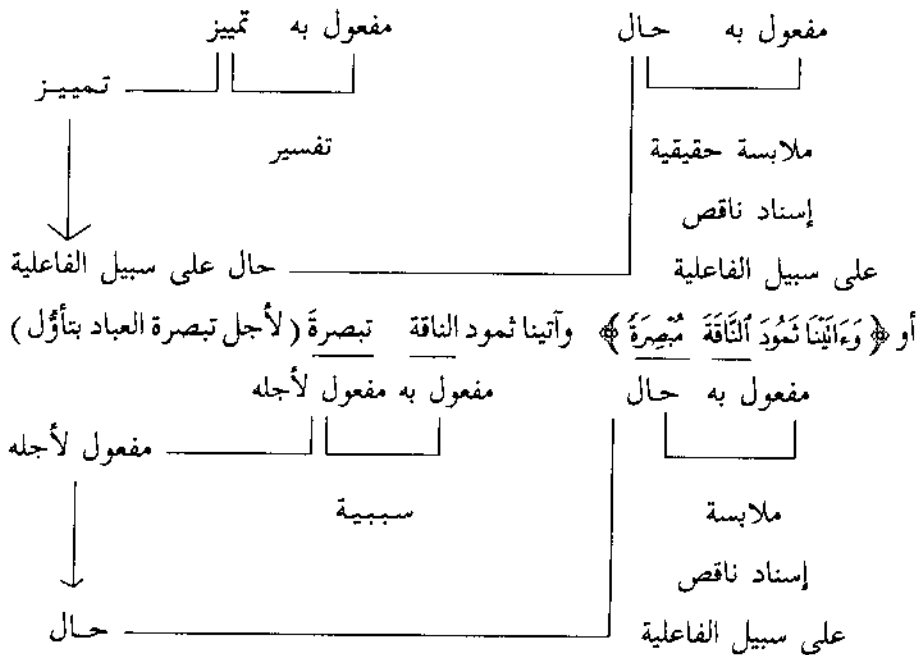 مفعول به حـال مفعول به تمييز
تـميـيـز
ملابسة حقيقية تفسير
إسناد ناقص
على سبيل الفاعلية حال على سبيل الفاعلية
أو ﴿ وَءَاتَيْنَا ثَمُودَ ٱلنَّاقَةَ مُبْصِرَةً ﴾ وآتينا ثمود الناقة تبصرةً ( لأجل تبصرة العباد بتأوُّل )
مفعول به حـال مفعول به مفعول لأجله
مفعول لأجله
ملابسة سـببـيـة
إسناد ناقص
على سبيل الفاعلية حـال